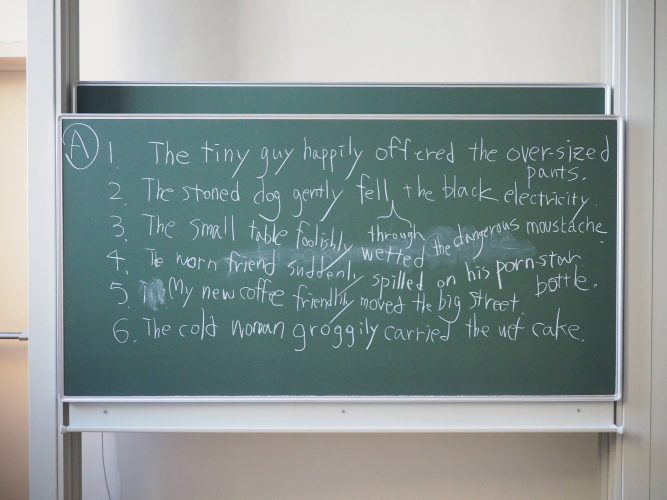 A
1. The tiny guy happily offered the over-sized
pants.
2. The stoned dog gently fell the black electricity.
through
3. The small table foolishly wetted the dangerous moustache.
4. The worn friend suddenly spilled on his pornstar
bottle.
5. My new coffee friendlily moved the big street.
6. The cold woman groggily carried the wet cake.